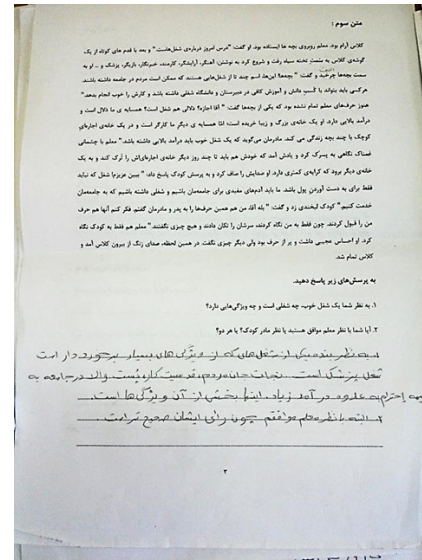 متن سوم :
کلاس آرام بود. معلم روبروی بچه ها ایستاده بود. او گفت: "درس امروز درباره‌ی شغل‌هاست" و بعد با قدم های کوتاه از یک
گوشه‌ی کلاس به سمت تخته سیاه رفت و شروع کرد به نوشتن: آهنگر، آرایشگر، کارمند، خبرنگار، بازیگر، پزشک و ... او به
سمت بچه‌ها چرخید و گفت: " بچه‌ها! این‌ها، اسم چند تا از شغل‌هایی هستند که ممکن است مردم در جامعه داشته باشند.
هرکسی باید بتواند با کسب دانش و آموزش کافی در دبیرستان و دانشگاه شغلی داشته باشد و کارش را خوب انجام بدهد."
هنوز حرف‌های معلم تمام نشده بود که یکی از بچه‌ها گفت: " آقا اجازه؟ دلالی هم شغل است؟ همسایه ی ما دلال است و
درآمد بالایی دارد. او یک خانه‌ی بزرگ و زیبا خریده است؛ امّا همسایه ی دیگر ما کارگر است و در یک خانه‌ی اجاره‌ایِ
کوچک با چند بچه زندگی می کند. مادرمان می‌گوید که یک شغل خوب باید درآمد بالایی داشته باشد." معلم با چشمانی
غمناک نگاهی به پسرک کرد و یادش آمد که خودش هم باید تا چند روز دیگر خانه‌ی اجاره‌ای‌اش را ترک کند و به یک
خانه‌ی دیگر برود که کرایه‌ی کمتری دارد. او صدایش را صاف کرد و به پرسش کودک پاسخ داد: " ببین عزیزم! شغل که نباید
فقط برای به دست آوردن پول باشد. ما باید آدم‌های مفیدی برای جامعه‌مان باشیم و شغلی داشته باشیم که به جامعه‌مان
خدمت کنیم." کودک لبخندی زد و گفت: " بله آقا، من هم همین حرف‌ها را به پدر و مادرمان گفتم. فکر کنم آنها هم حرف
من را قبول کردند. چون فقط به من نگاه کردند، سرشان را تکان دادند و هیچ چیزی نگفتند." معلم هم فقط به کودک نگاه
کرد. او احساس عجیبی داشت و پر از حرف بود ولی دیگر چیزی نگفت. در همین لحظه، صدای زنگ از بیرون کلاس آمد و
کلاس تمام شد.
به پرسش‌های زیر پاسخ دهید.
۱. به نظر شما یک شغل خوب، چه شغلی است و چه ویژگی‌هایی دارد؟
۲. آیا شما با نظر معلم موافق هستید یا نظر مادر کودک؟ یا هر دو؟
۱. به نظر بنده یکی از شغل‌های که از ویژگی های بسیار برخوردار است
شغل پزشکی است. نجات جان مردم، فرصت کار، پُست والا در جامعه به
همه احترام به علاوه درآمد زیاد. اینها بخشی از آن ویژگی ها است.
۲. البته با نظر معلم موافقم چون رای ایشان صحیح تر است.
۲